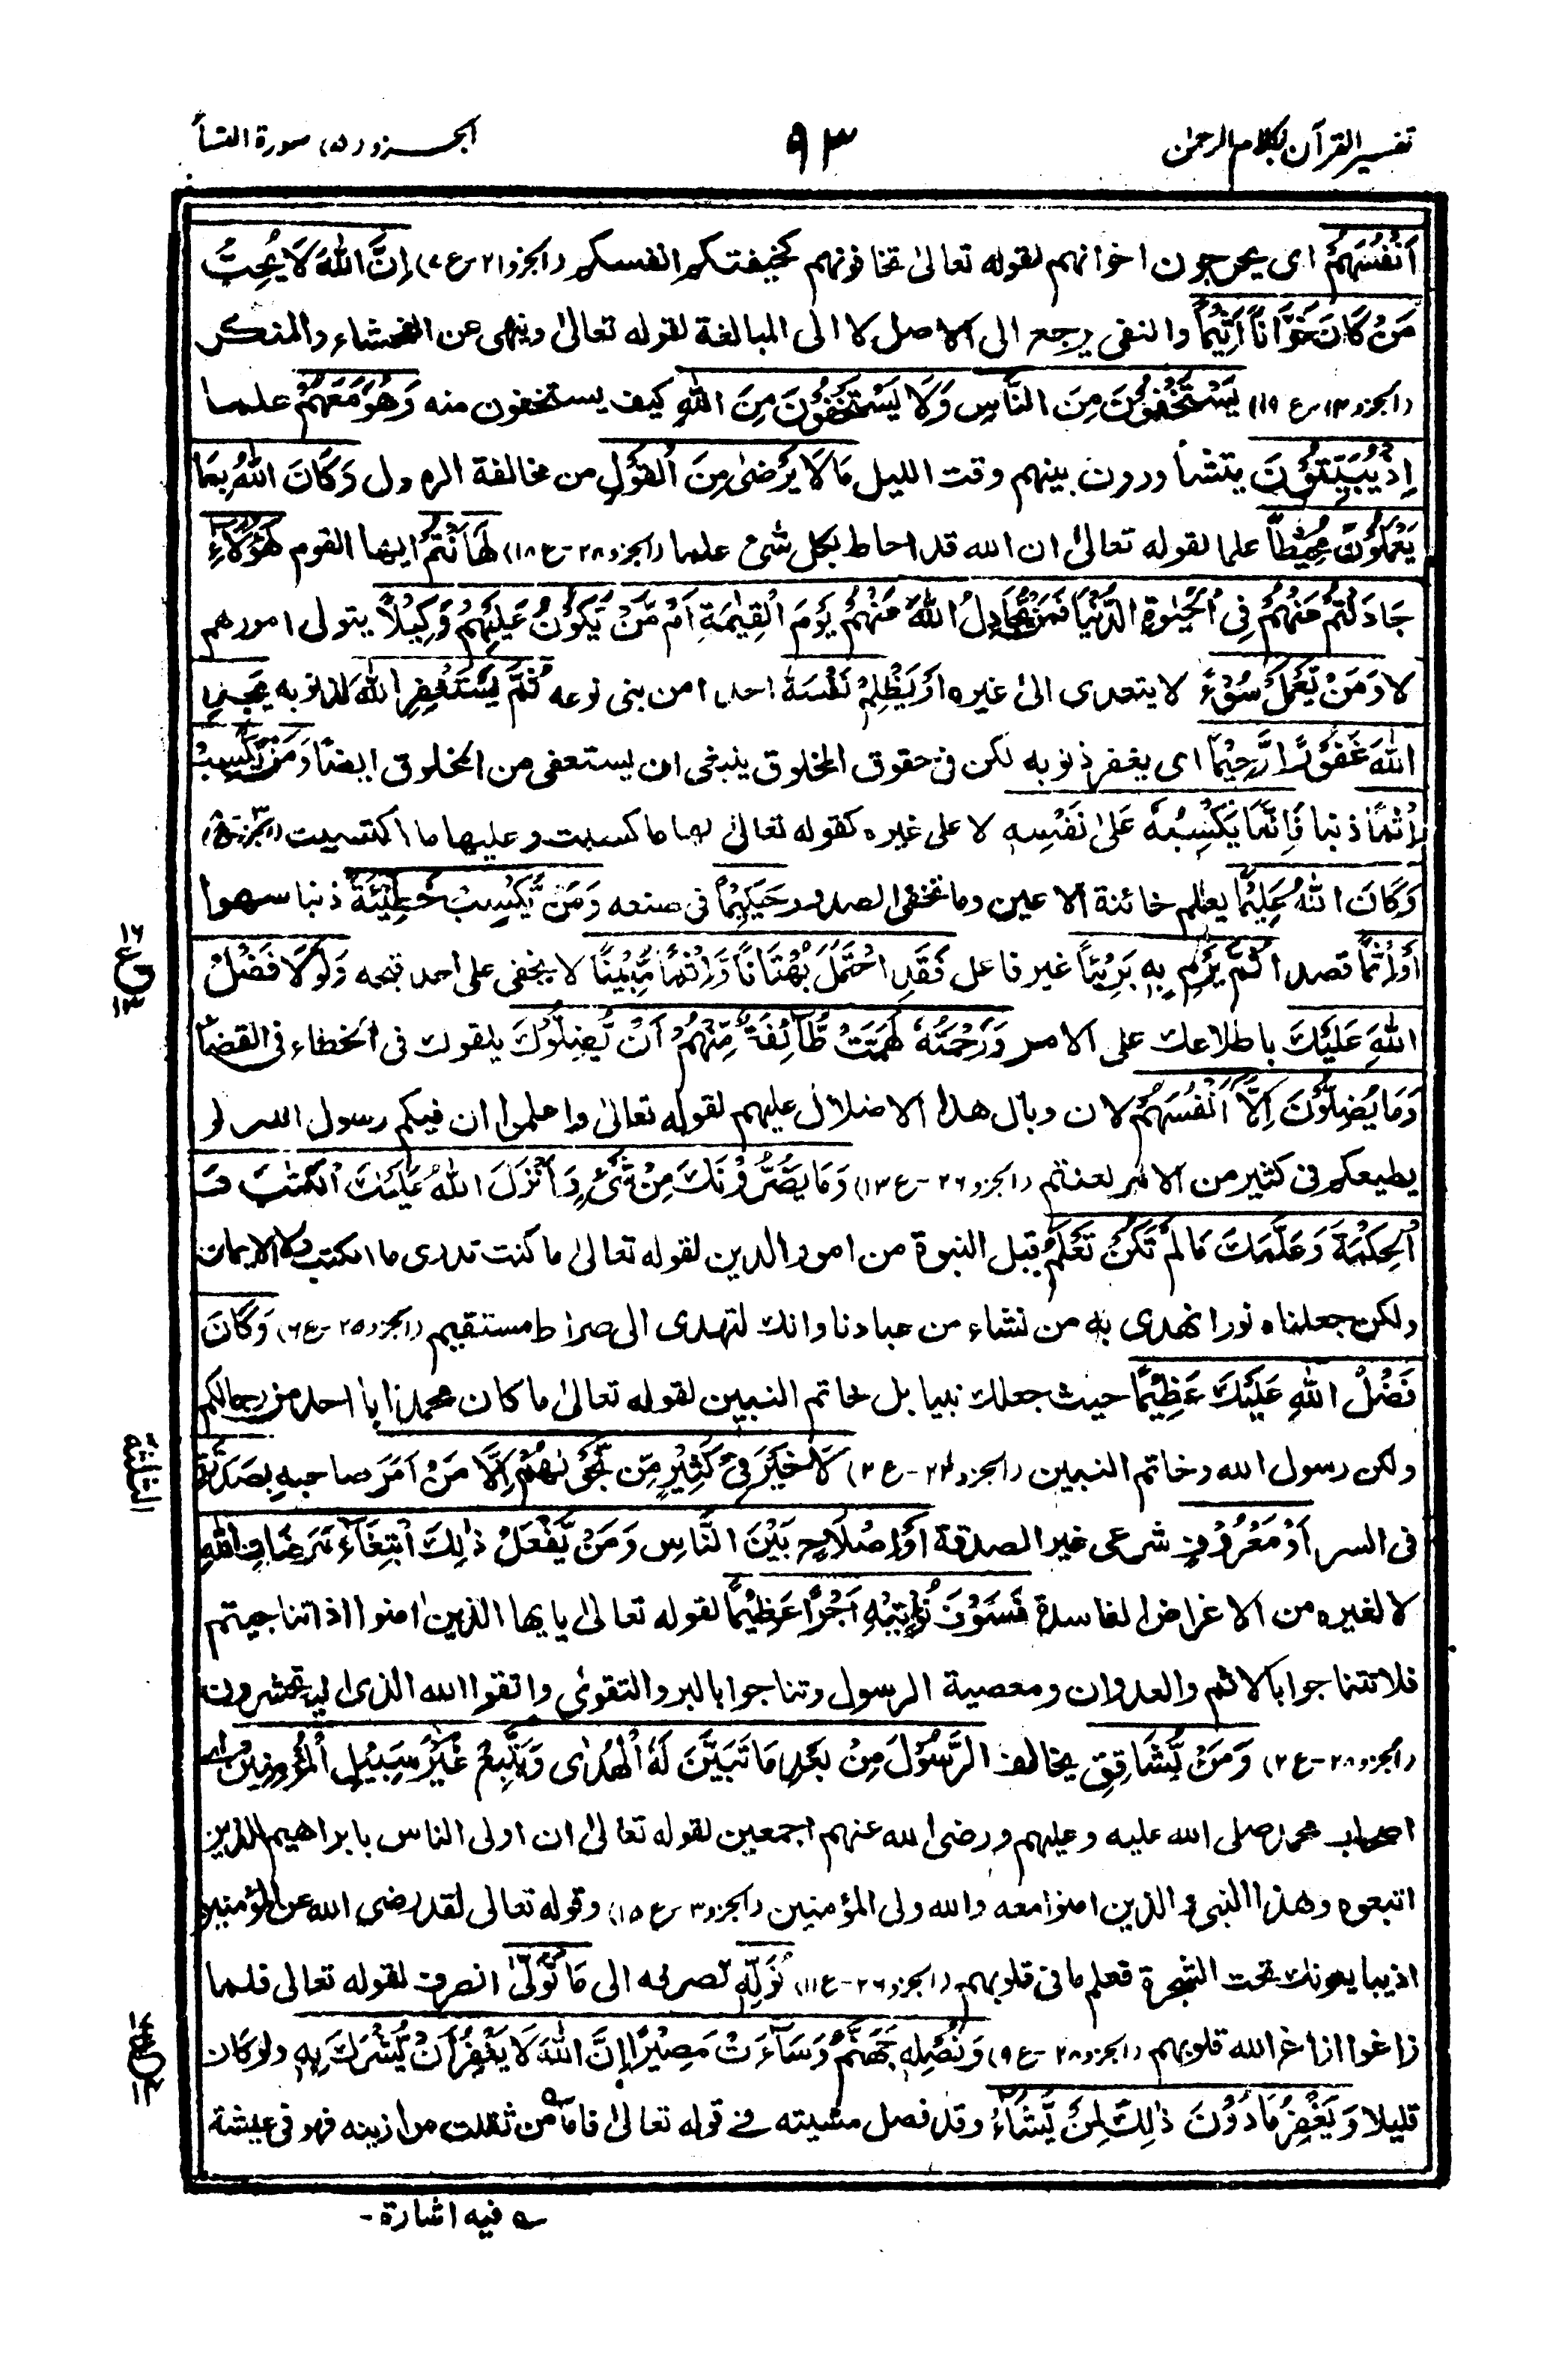 تفسير القرآن بكلام الرحمن
٩٣
الجزو (٥) سورة النسأ
اَنْفُسَهُمْ اى يحرجون اخوانهم لقوله تعالىٰ تخافونهم كخيفتكم انفسكم (الجزو ٢١-ع ٧) اِنَّ اللّٰهَ لَا يُحِبُّ
مَنْ كَانَ خَوَّانًا اَثِيْمًا والنفى يرجع الى الاصل لا الى المبالغة لقوله تعالىٰ وينهى عن الفحشاء والمنكر
(الجزو ١٤-ع ١٩) يَسْتَخْفُوْنَ مِنَ النَّاسِ وَلَا يَسْتَخْفُوْنَ مِنَ اللّٰهِ كيف يستخفون منه وَهُوَ مَعَهُمْ علما
اِذْ يُبَيِّتُوْنَ يتشأورون بينهم وقت الليل مَا لَا يَرْضٰى مِنَ الْقَوْلِ من مخالفة الرسول وَكَانَ اللّٰهُ بِمَا
يَعْمَلُوْنَ مُحِيْطًا علما لقوله تعالىٰ ان الله قد احاط بكل شئ علما (الجزو ٢٨-ع ١٨) هٰٓاَنْتُمْ ايها القوم هٰٓؤُلَاءِ
جَادَلْتُمْ عَنْهُمْ فِى الْحَيٰوةِ الدُّنْيَا فَمَنْ يُّجَادِلُ اللّٰهَ عَنْهُمْ يَوْمَ الْقِيٰمَةِ اَمْ مَّنْ يَّكُوْنُ عَلَيْهِمْ وَكِيْلًا يتولى امورهم
لا وَمَنْ يَّعْمَلْ سُوْٓءً لا يتعدى الىٰ غيره اَوْ يَظْلِمْ نَفْسَهٗ احدا من بنى نوعه ثُمَّ يَسْتَغْفِرِ اللّٰهَ لذنوبه يَجِدِ
اللّٰهَ غَفُوْرًا رَّحِيْمًا اى يغفر ذنوبه لكن فى حقوق المخلوق ينبغى ان يستعفى من المخلوق ايضًا وَمَنْ يَّكْسِبْ
اِثْمًا ذنبا فَاِنَّمَا يَكْسِبُهٗ عَلٰى نَفْسِهٖ لا على غيره كقوله تعالىٰ لها ما كسبت وعليها ما اكتسبت
وَكَانَ اللّٰهُ عَلِيْمًا يعلم خائنة الاعين وما تخفى الصدور حَكِيْمًا فى صنعه وَمَنْ يَّكْسِبْ خَطِيْٓئَةً ذنبا سهوا
اَوْ اِثْمًا قصدا ثُمَّ يَرْمِ بِهٖ بَرِيْٓئًا غير فاعل فَقَدِ احْتَمَلَ بُهْتَانًا وَّاِثْمًا مُّبِيْنًا لا يخفى على احد قبحه وَلَوْلَا فَضْلُ
اللّٰهِ عَلَيْكَ باطلاعك على الامر وَرَحْمَتُهٗ لَهَمَّتْ طَّآئِفَةٌ مِّنْهُمْ اَنْ يُّضِلُّوْكَ يلقوك فى الخطاء فى القضاء
وَمَا يُضِلُّوْنَ اِلَّا اَنْفُسَهُمْ لان وبال هذا الاضلال عليهم لقوله تعالىٰ واعلموا ان فيكم رسول الله لو
يطيعكم فى كثير من الامر لعنتم (الجزو ٢٦-ع ١٣) وَمَا يَضُرُّوْنَكَ مِنْ شَىْءٍ وَاَنْزَلَ اللّٰهُ عَلَيْكَ الْكِتٰبَ وَ
الْحِكْمَةَ وَعَلَّمَكَ مَا لَمْ تَكُنْ تَعْلَمُ قبل النبوة من امور الدين لقوله تعالىٰ ما كنت تدرى ما الكتب ولا الايمان
ولكن جعلناه نورا نهدى به من نشاء من عبادنا وانك لتهدى الى صراط مستقيم (الجزو ٢٥-ع ٦) وَكَانَ
فَضْلُ اللّٰهِ عَلَيْكَ عَظِيْمًا حيث جعلك نبيا بل خاتم النبيين لقوله تعالىٰ ما كان محمد ابا احد من رجالكم
ولكن رسول الله وخاتم النبيين (الجزو ٢٢-ع ٢) لَا خَيْرَ فِىْ كَثِيْرٍ مِّنْ نَّجْوٰىهُمْ اِلَّا مَنْ اَمَرَ صاحبه بِصَدَقَةٍ
فى السر اَوْ مَعْرُوْفٍ شرعى غير الصدقة اَوْ اِصْلَاحٍ بَيْنَ النَّاسِ وَمَنْ يَّفْعَلْ ذٰلِكَ ابْتِغَآءَ مَرْضَاتِ اللّٰهِ
لا لغيره من الاغراض الفاسدة فَسَوْفَ نُؤْتِيْهِ اَجْرًا عَظِيْمًا لقوله تعالىٰ يايها الذين امنوا اذا تناجيتم
فلا تتناجوا بالاثم والعدوان ومعصية الرسول وتناجوا بالبر والتقوىٰ واتقوا الله الذى اليه تحشرون
(الجزو ٢٨-ع ٢) وَمَنْ يُّشَاقِقِ يخالف الرَّسُوْلَ مِنْ بَعْدِ مَا تَبَيَّنَ لَهُ الْهُدٰى وَيَتَّبِعْ غَيْرَ سَبِيْلِ الْمُؤْمِنِيْنَ اى
اصحاب محمد صلى الله عليه وعليهم ورضى الله عنهم اجمعين لقوله تعالىٰ ان اولى الناس بابراهيم للذين
اتبعوه وهذا النبى والذين امنوا معه والله ولى المؤمنين (الجزو ٣-ع ١٥) وقوله تعالى لقد رضى الله عن المؤمنين
اذ يبايعونك تحت الشجرة فعلم ما فى قلوبهم (الجزو ٢٦-ع ١١) نُوَلِّهٖ نصرفه الى مَا تَوَلّٰى انصرف لقوله تعالى فلما
زاغوا ازاغ الله قلوبهم (الجزو ٢٨-ع ٩) وَنُصْلِهٖ جَهَنَّمَ وَسَآءَتْ مَصِيْرًا اِنَّ اللّٰهَ لَا يَغْفِرُ اَنْ يُّشْرَكَ بِهٖ ولو كان
قليلا وَيَغْفِرُ مَا دُوْنَ ذٰلِكَ لِمَنْ يَّشَآءُ وقد فصل مشيته فى قوله تعالىٰ فاما من ثقلت موازينه فهو فى عيشة
١٦
ع
١٣
ع
١٤
ه فيه اشارة -